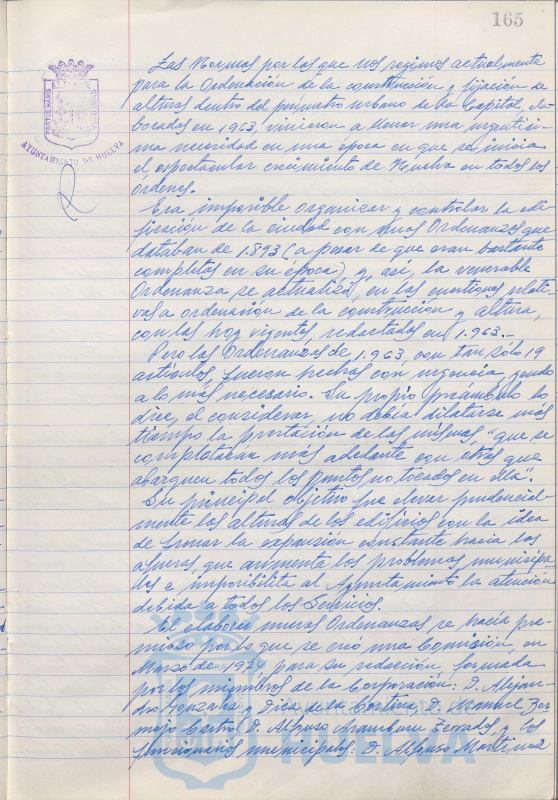 165
PORTUS MARIS ET TERRAE CUSTODIA
AYUNTAMIENTO DE HUELVA
Las Normas por las que nos regimos actualmente
para la Ordenación de la construcción y fijación de
alturas dentro del perímetro urbano de la Capital, ela-
boradas en 1963, vinieron a llenar una urgentísi-
ma necesidad en una época en que se inicia
el espectacular crecimiento de Huelva en todos los
órdenes.
Era imposible organizar y controlar la edi-
ficación de la ciudad con unas Ordenanzas que
databan de 1.893 (a pesar de que eran bastante
completas en su época) y, así, la venerable
Ordenanza se actualizó, en las cuestiones relati-
vas a ordenación de la construcción y altura,
con las hoy vigentes, redactadas en 1.963.-
Pero las Ordenanzas de 1.963, con tan sólo 19
artículos, fueron hechas con urgencia, yendo
a lo más necesario. Su propio preámbulo lo
dice, al considerar, no debía dilatarse más
tiempo la de las mismas, "que se
completarán más adelante con otras que
abarquen todos los puntos no tocados en ella".
Su principal objetivo fue elevar prudencial
mente las alturas de los edificios con la idea
de frenar la expansión constante hacia las
afueras que aumenta los problemas municipa-
les e imposibilita al Ayuntamiento la atención
debida a todos los Servicios.
El elaborar nuevas Ordenanzas se hacía pre-
ciso por lo que se creó una Comisión, en
Marzo de 1974, para su redacción, formada
por los miembros de la Corporación: D. Alejan-
dro González y Díez de la Cortina, D. Manuel Ber
mejo Castro, D. Alfonso Aramburu Terrades, y los
funcionarios municipales: D. Alfonso Martínez
HUELVA